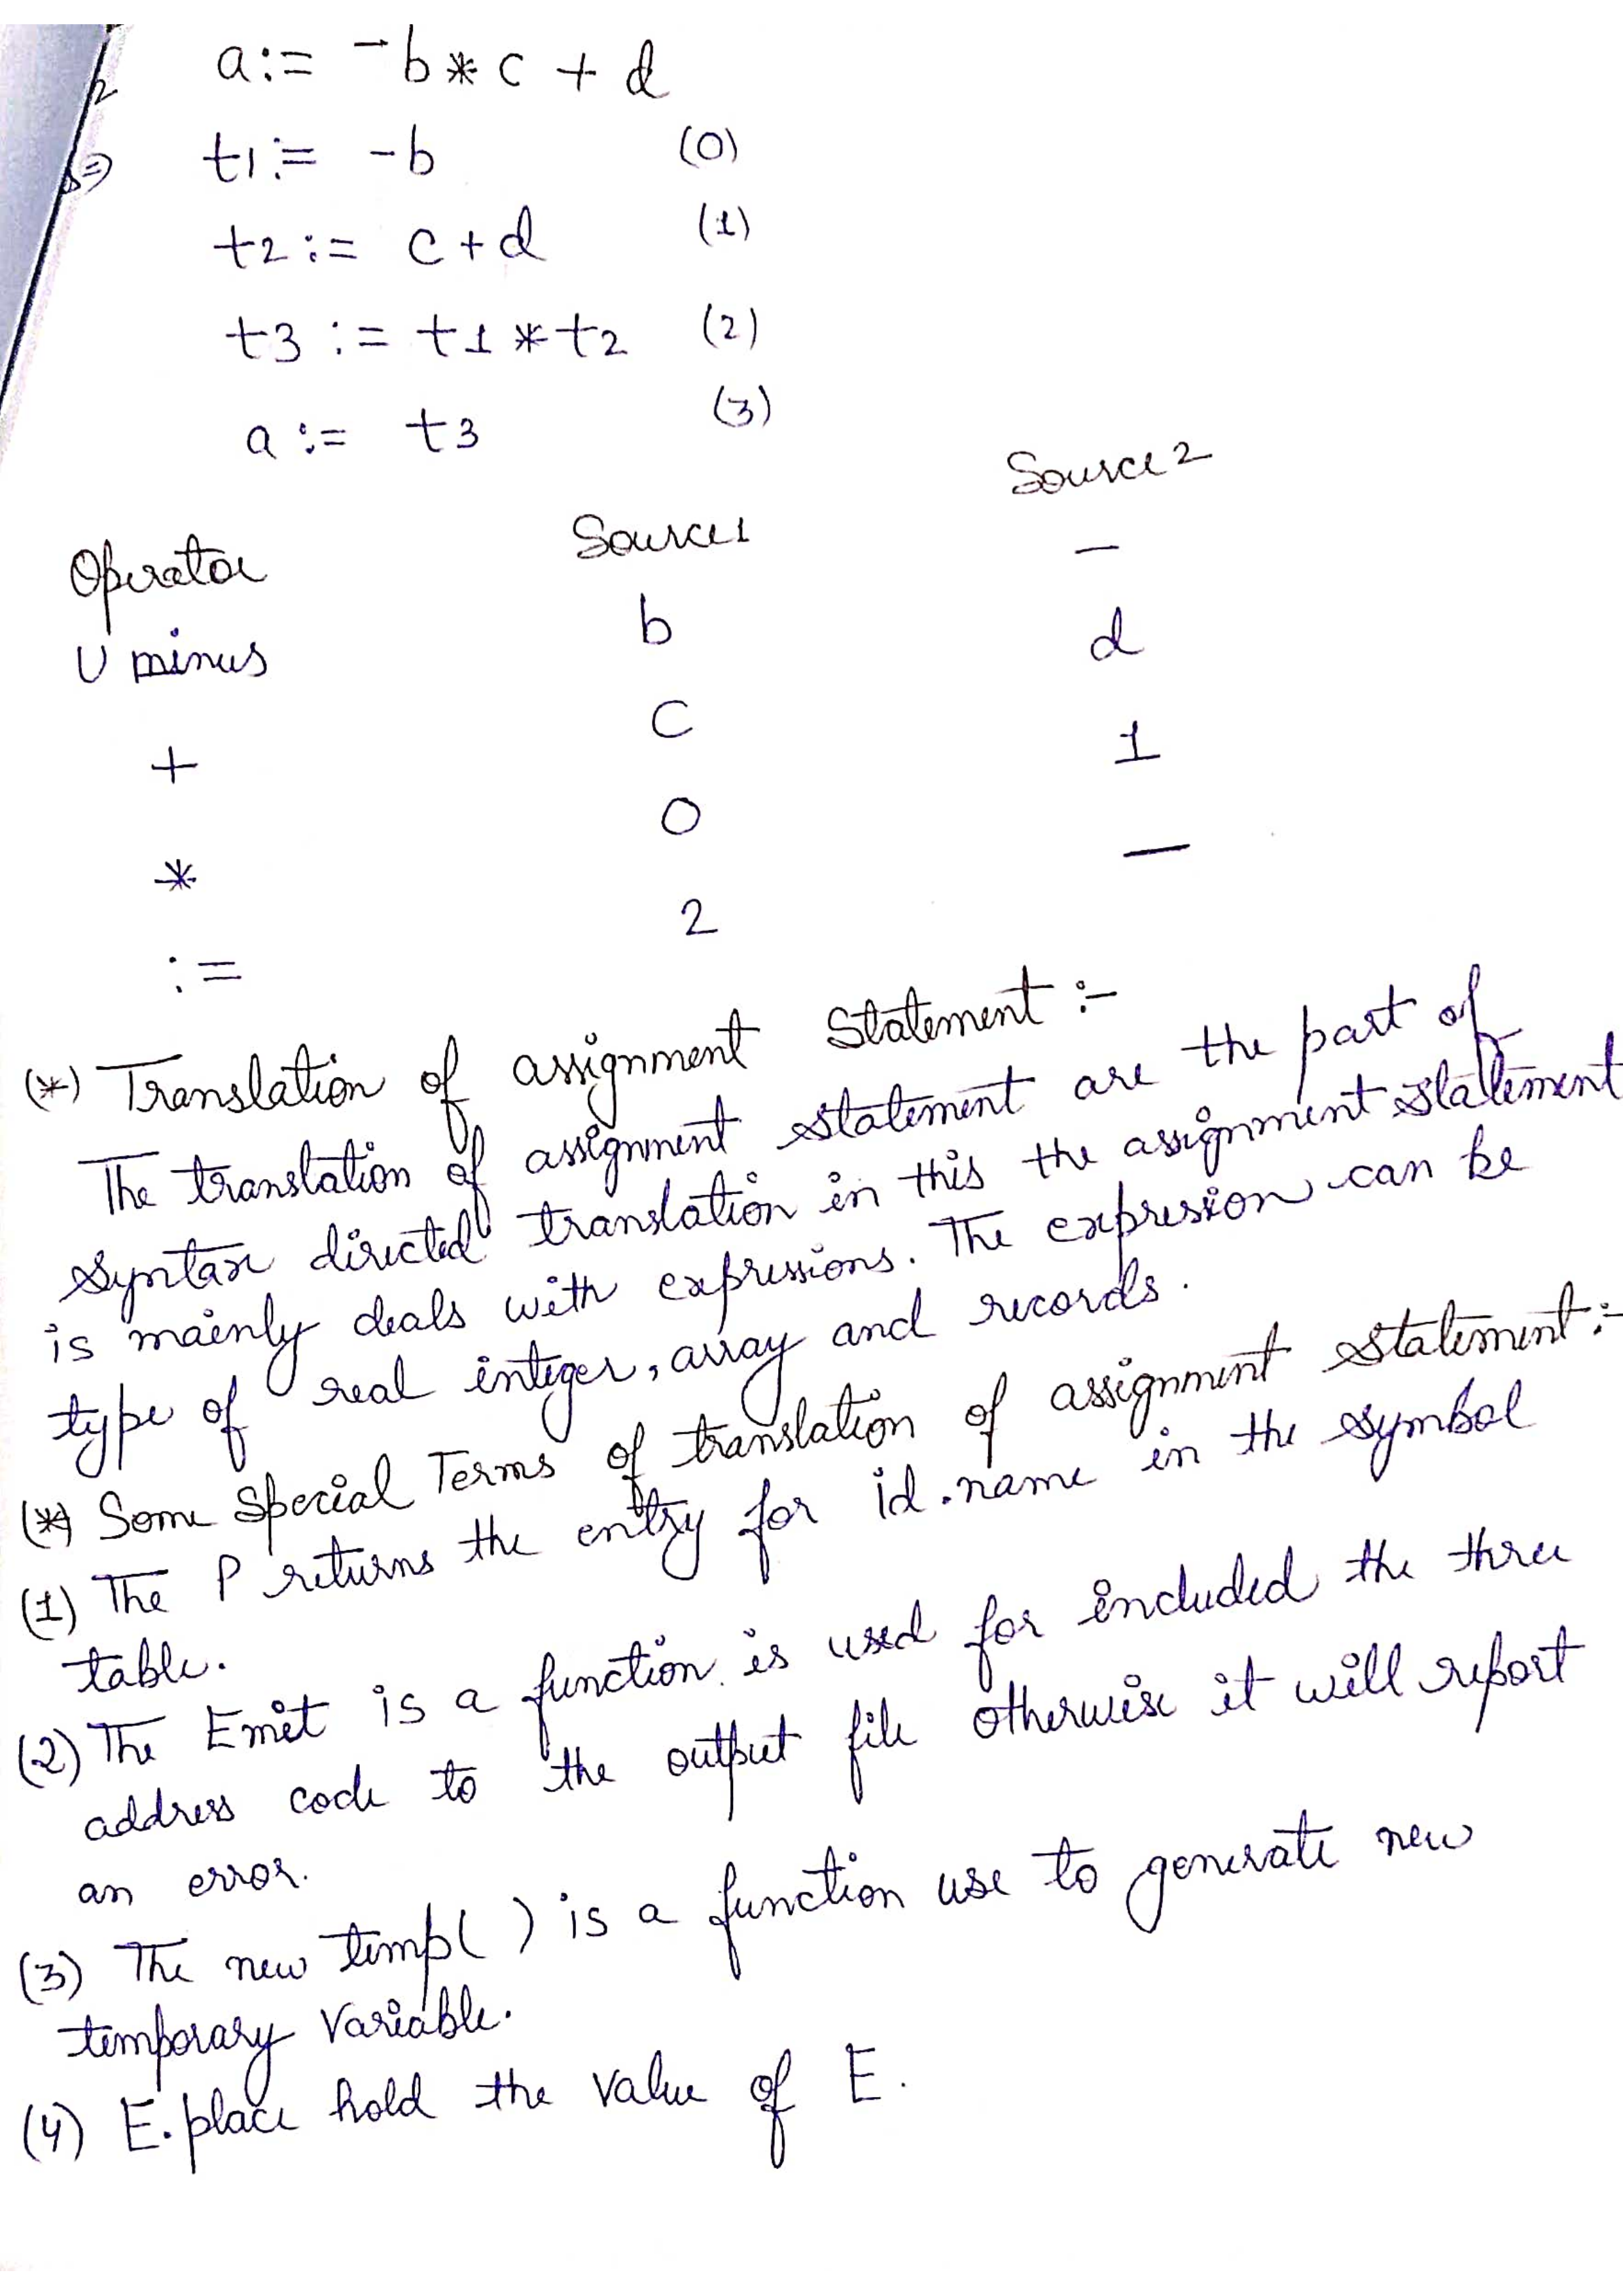 2
a:= -b * c + d
⇒ t1:= -b (0)
t2:= c+d (1)
t3 := t1 * t2 (2)
a := t3 (3)
Operator Source1 Source2
U minus b —
+ c d
* 0 1
:= 2 —
(*) Translation of assignment Statement :-
The translation of assignment statement are the part of
Syntax directed translation in this the assignment statement
is mainly deals with expressions. The expresion can be
type of real integer, array and records.
(*) Some Special Terms of translation of assignment statement:-
(1) The P returns the entry for id.name in the symbol
table.
(2) The Emit is a function is used for included the three
address code to the output file otherwise it will report
an error.
(3) The new temp( ) is a function use to generate new
temporary Variable.
(4) E.place hold the value of E.